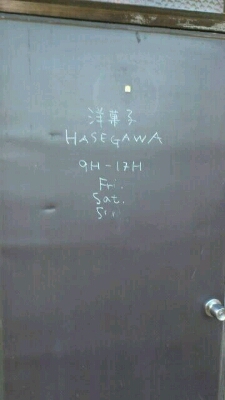 洋菓子
HASEGAWA
9H-17H
Fri.
Sat.